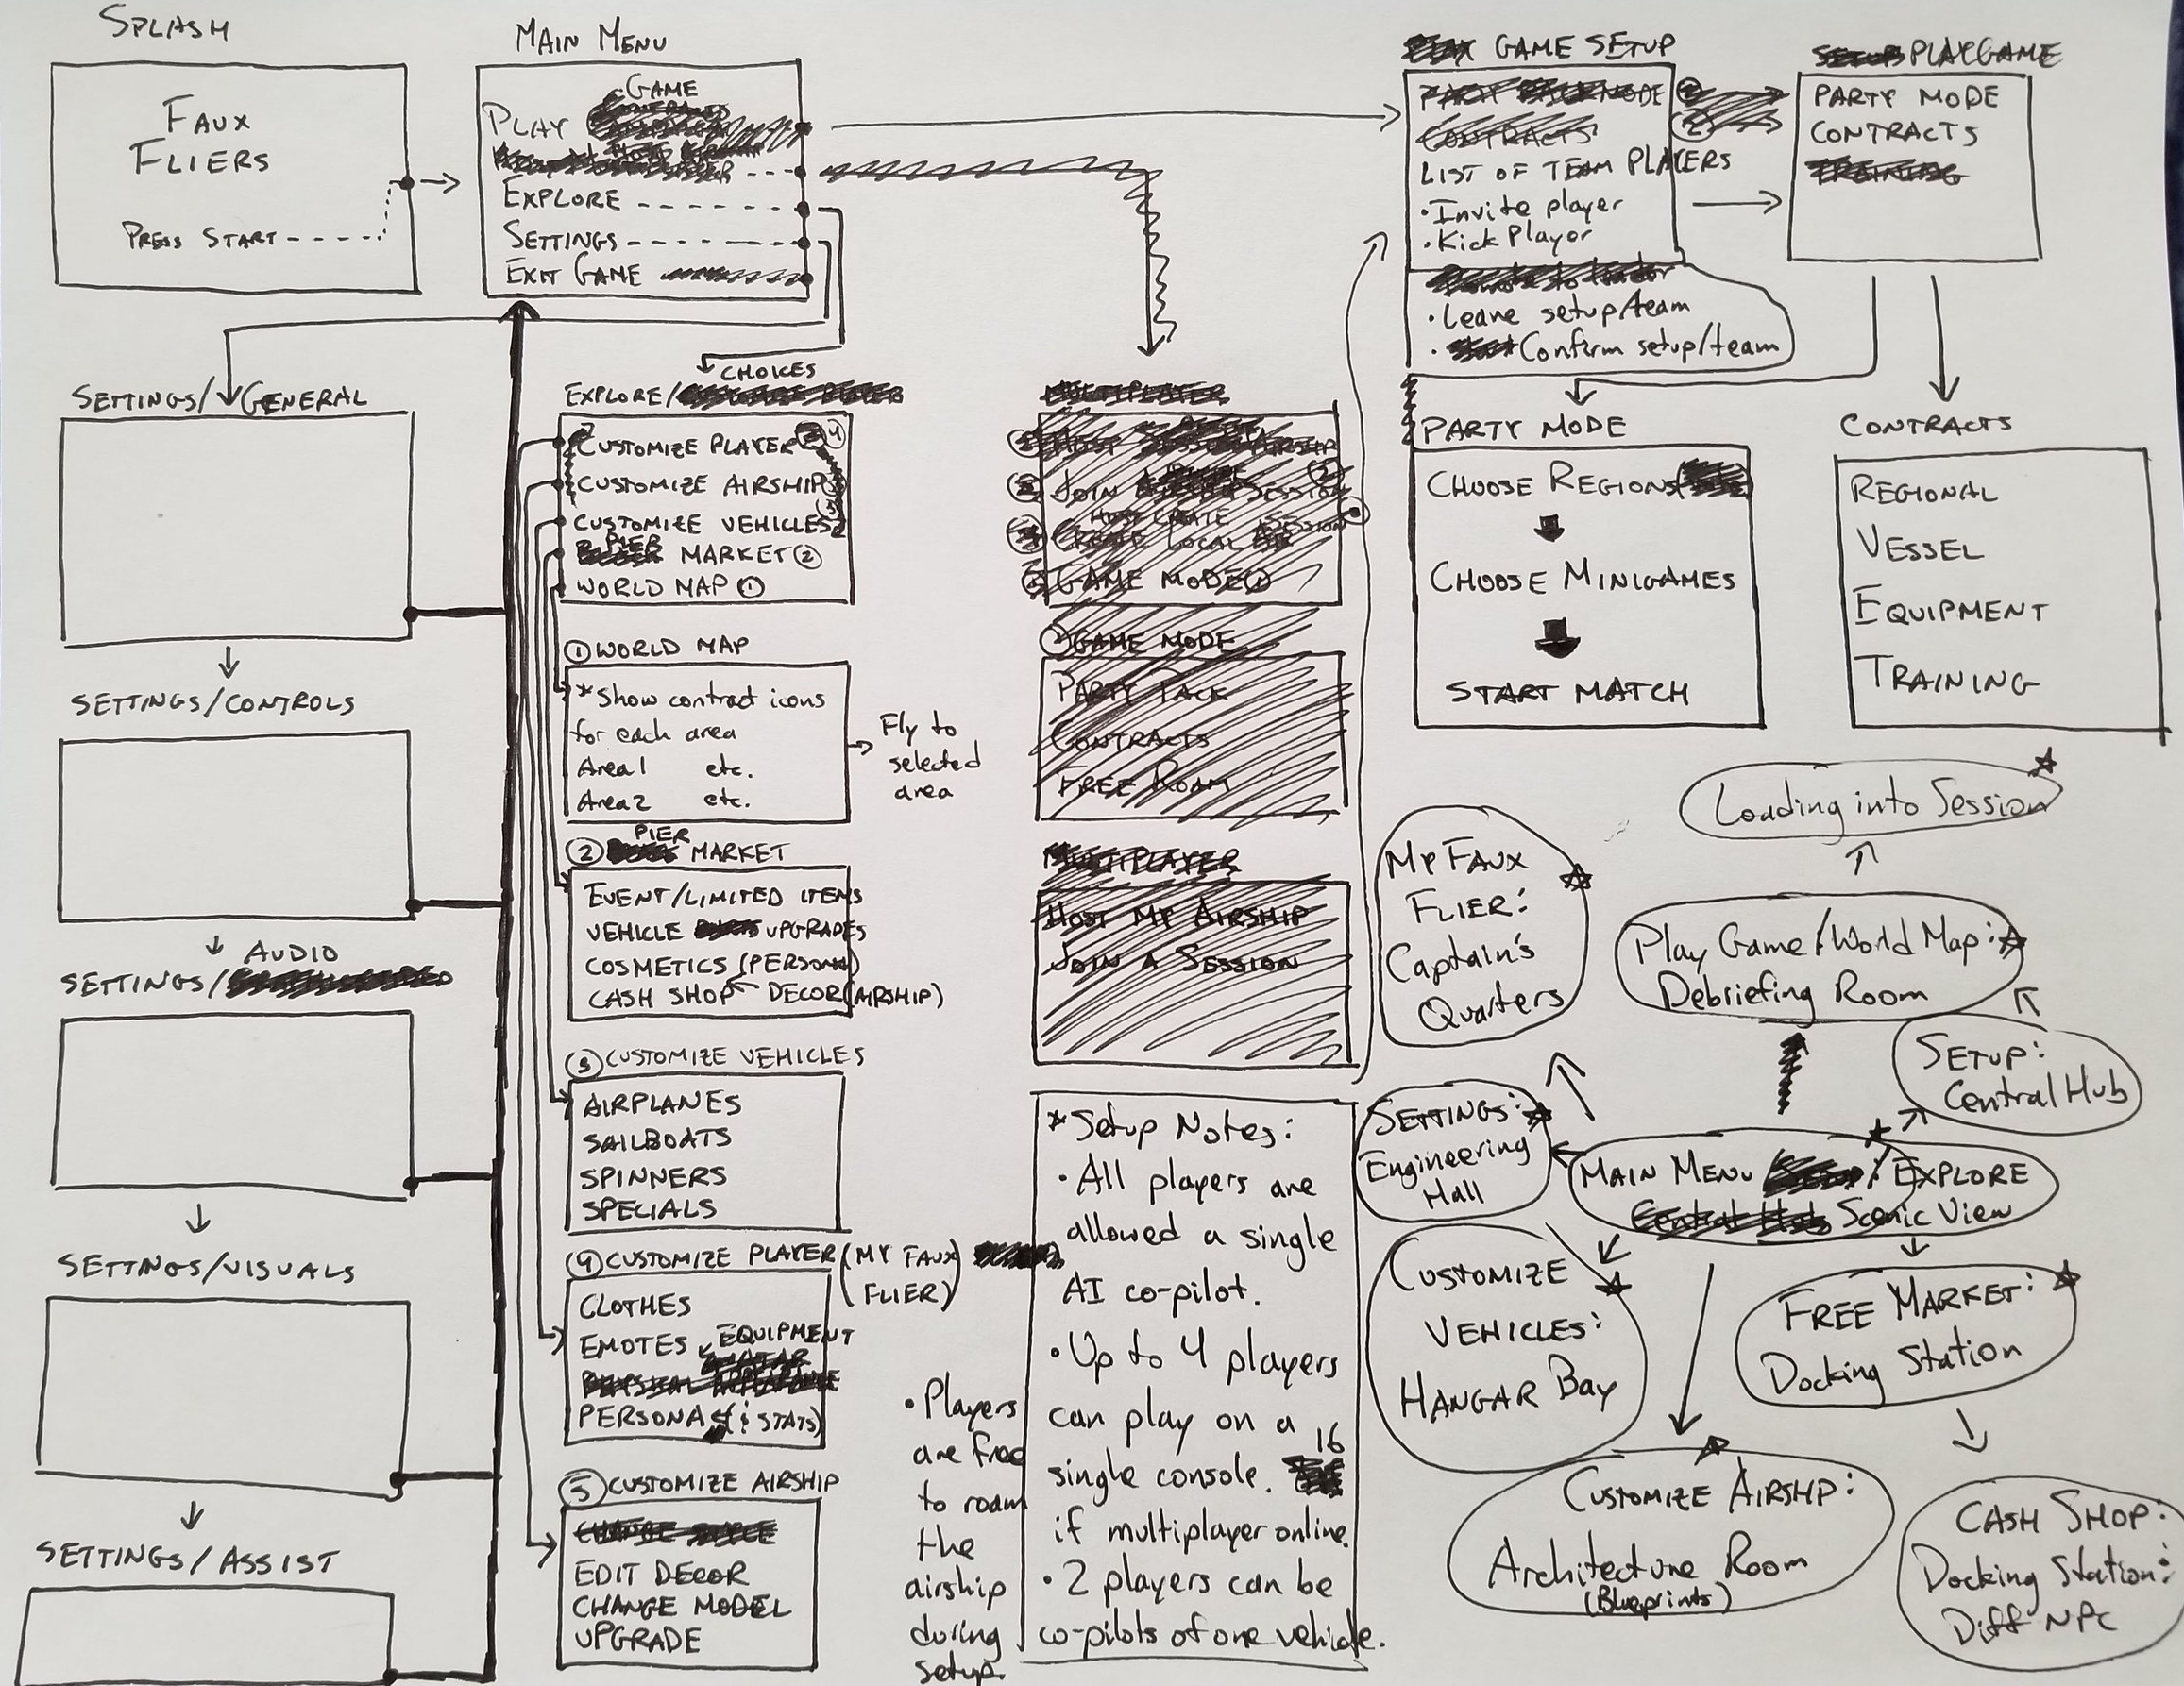 SPLASH
FAUX
FLIERS
PRESS START
MAIN MENU
GAME
PLAY
EXPLORE
SETTINGS
EXIT GAME
GAME SETUP
CONTRACTS
LIST OF TEAM PLAYERS
• Invite player
• Kick Player
• Leave setup/team
• Confirm setup/team
PLAYGAME
PARTY MODE
CONTRACTS
TRAINING
SETTINGS/GENERAL
SETTINGS/CONTROLS
AUDIO
SETTINGS/
SETTINGS/VISUALS
SETTINGS/ASSIST
CHOICES
EXPLORE/
CUSTOMIZE PLAYER 4
CUSTOMIZE AIRSHIP
CUSTOMIZE VEHICLES
PIER
MARKET 2
WORLD MAP 1
1 WORLD MAP
* Show contract icons
for each area
Area 1 etc.
Area 2 etc.
Fly to
selected
area
PIER
2 MARKET
EVENT/LIMITED ITEMS
VEHICLE UPGRADES
COSMETICS (PERSONA)
CASH SHOP DECOR (AIRSHIP)
3 CUSTOMIZE VEHICLES
AIRPLANES
SAILBOATS
SPINNERS
SPECIALS
4 CUSTOMIZE PLAYER (MY FAUX
FLIER)
CLOTHES
EMOTES EQUIPMENT
AVATAR
PERSONA (& STATS)
5 CUSTOMIZE AIRSHIP
EDIT DECOR
CHANGE MODEL
UPGRADE
MULTIPLAYER
JOIN SESSION
GAME MODE 1
1 GAME MODE
PARTY PACK
CONTRACTS
FREE ROAM
MULTIPLAYER
HOST MY AIRSHIP
JOIN A SESSION
• Players
are free
to roam
the
airship
during
setup.
* Setup Notes:
• All players are
allowed a single
AI co-pilot.
• Up to 4 players
can play on a
single console. 16
if multiplayer online.
• 2 players can be
co-pilots of one vehicle.
PARTY MODE
CHOOSE REGIONS
CHOOSE MINIGAMES
START MATCH
CONTRACTS
REGIONAL
VESSEL
EQUIPMENT
TRAINING
Loading into Session
MY FAUX
FLIER:
Captain's
Quarters
Play Game/World Map:
Debriefing Room
SETUP:
Central Hub
SETTINGS:
Engineering
Hall
MAIN MENU / EXPLORE
Central Hub Scenic View
CUSTOMIZE
VEHICLES:
HANGAR BAY
FREE MARKET:
Docking Station
CUSTOMIZE AIRSHIP:
Architecture Room
(Blueprints)
CASH SHOP:
Docking Station:
Diff NPC